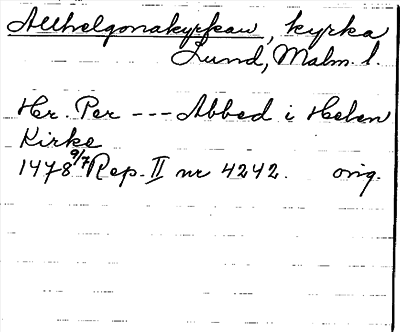 Allhelgonakyrkan, kyrka
Lund, Malm. l.
Hr. Per --- Abbed i Helen
Kirke
1478 9/7 Rep. II nr 4242. orig.